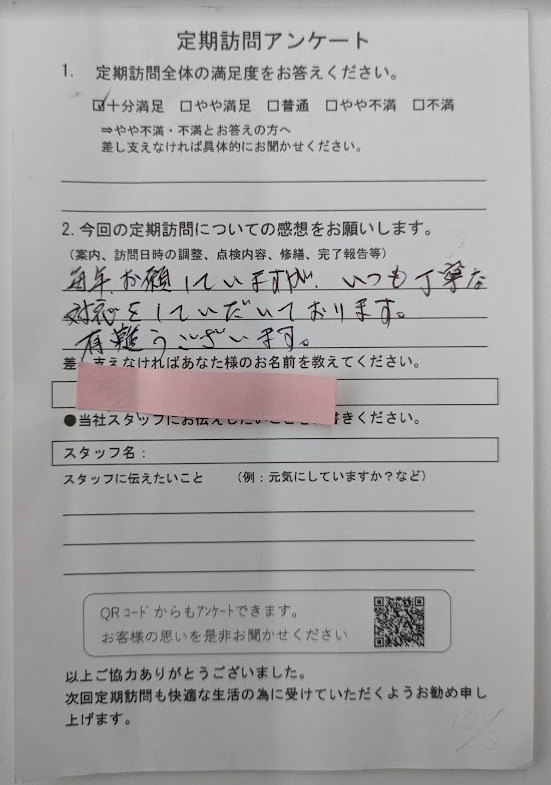 定期訪問アンケート
1. 定期訪問全体の満足度をお答えください。
☑十分満足 □やや満足 □普通 □やや不満 □不満
⇒やや不満・不満とお答えの方へ
差し支えなければ具体的にお聞かせください。
2. 今回の定期訪問についての感想をお願いします。
（案内、訪問日時の調整、点検内容、修繕、完了報告等）
毎年、お願していますが、いつも丁寧な
対応をしていだいております。
有難うございます。
差し支えなければあなた様のお名前を教えてください。
●当社スタッフにお伝えしたいことを 書きください。
スタッフ名：
スタッフに伝えたいこと （例：元気にしていますか？など）
QRコードからもアンケートできます。
お客様の思いを是非お聞かせください
以上ご協力ありがとうございました。
次回定期訪問も快適な生活の為に受けていただくようお勧め申し
上げます。